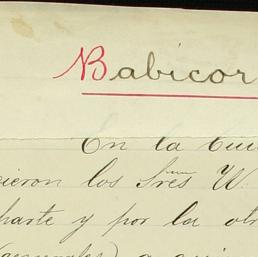 Babicor
En la Ciu
cieron los Sres W.
parte y por la otr